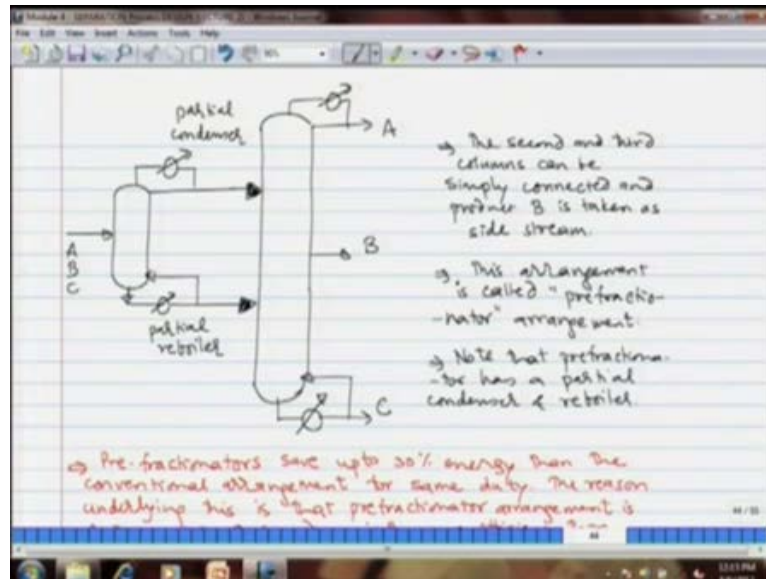 Module 4 - SEPARATION Process DESIGN (LECTURE 2) - Windows Journal
File Edit View Insert Actions Tools Help
partial
condenser
A
B
C
partial
reboiler
A
B
C
→ The second and third
columns can be
simply connected and
product B is taken as
side stream.
→ This arrangement
is called "prefractio-
-nator" arrangement.
→ Note that prefractiona-
-tor has a partial
condenser & reboiler.
→ Pre-fractionators save upto 30% energy than the
conventional arrangement for same duty. The reason
underlying this is that prefractionator arrangement is
44
12:13 PM